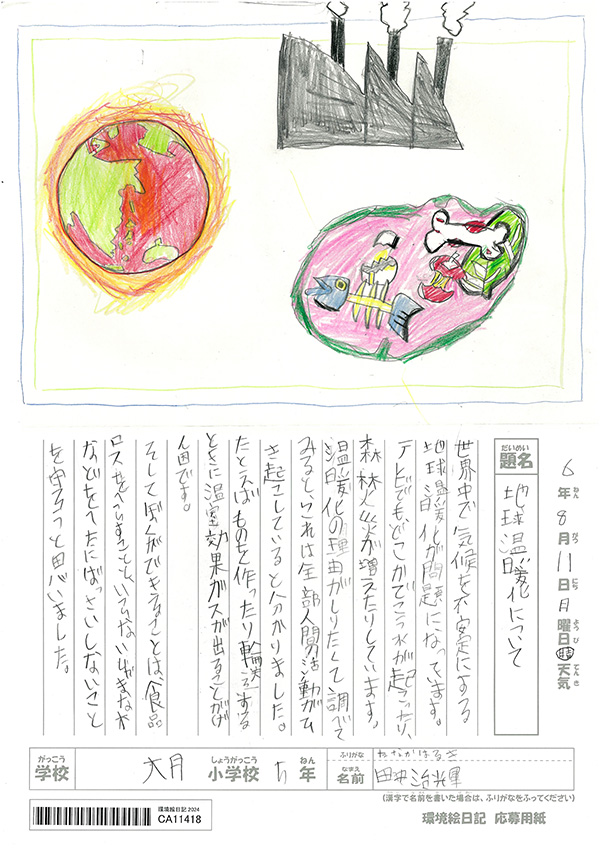 6年8月11日月曜日 晴 天気
ねん がつ にち ようび てんき
だいめい
題名
地球温暖化について
世界中で気候を不安定にする
地球温暖化が問題になっています。
テレビでも、どこかでこう水が起こったり、
森林火災が増えたりしています。
温暖化の理由がしりたくて調べて
みると、これは全部人間活動がひ
き起こしていると分かりました。
たとえばものを作ったり輸送する
ときに温室効果ガスが出ることがげ
ん因です。
そしてぼくができることは、食品
ロスをへらすことと、
などをへたにばっさいしないこと
を守ろうと思いました。
がっこう しょうがっこう ねん ふりがな たなかはるき
学校 大月 小学校 5年 なまえ 名前 田中治輝
(漢字で名前を書いた場合は、ふりがなをふってください)
環境絵日記 2024
CA11418
環境絵日記 応募用紙